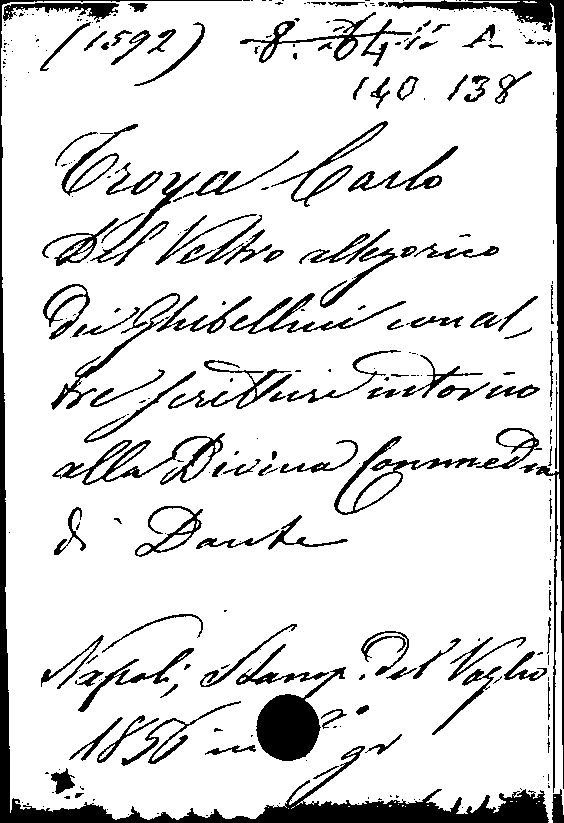 (1592) 8. 64.
140. 138
Troya Carlo
Del Veltro allegorico
dei Ghibellini con al,
tre scritture intorno
alla Divina Commedia
di Dante
Napoli; Stamp. del Vaglio
1856 in 2º
gr